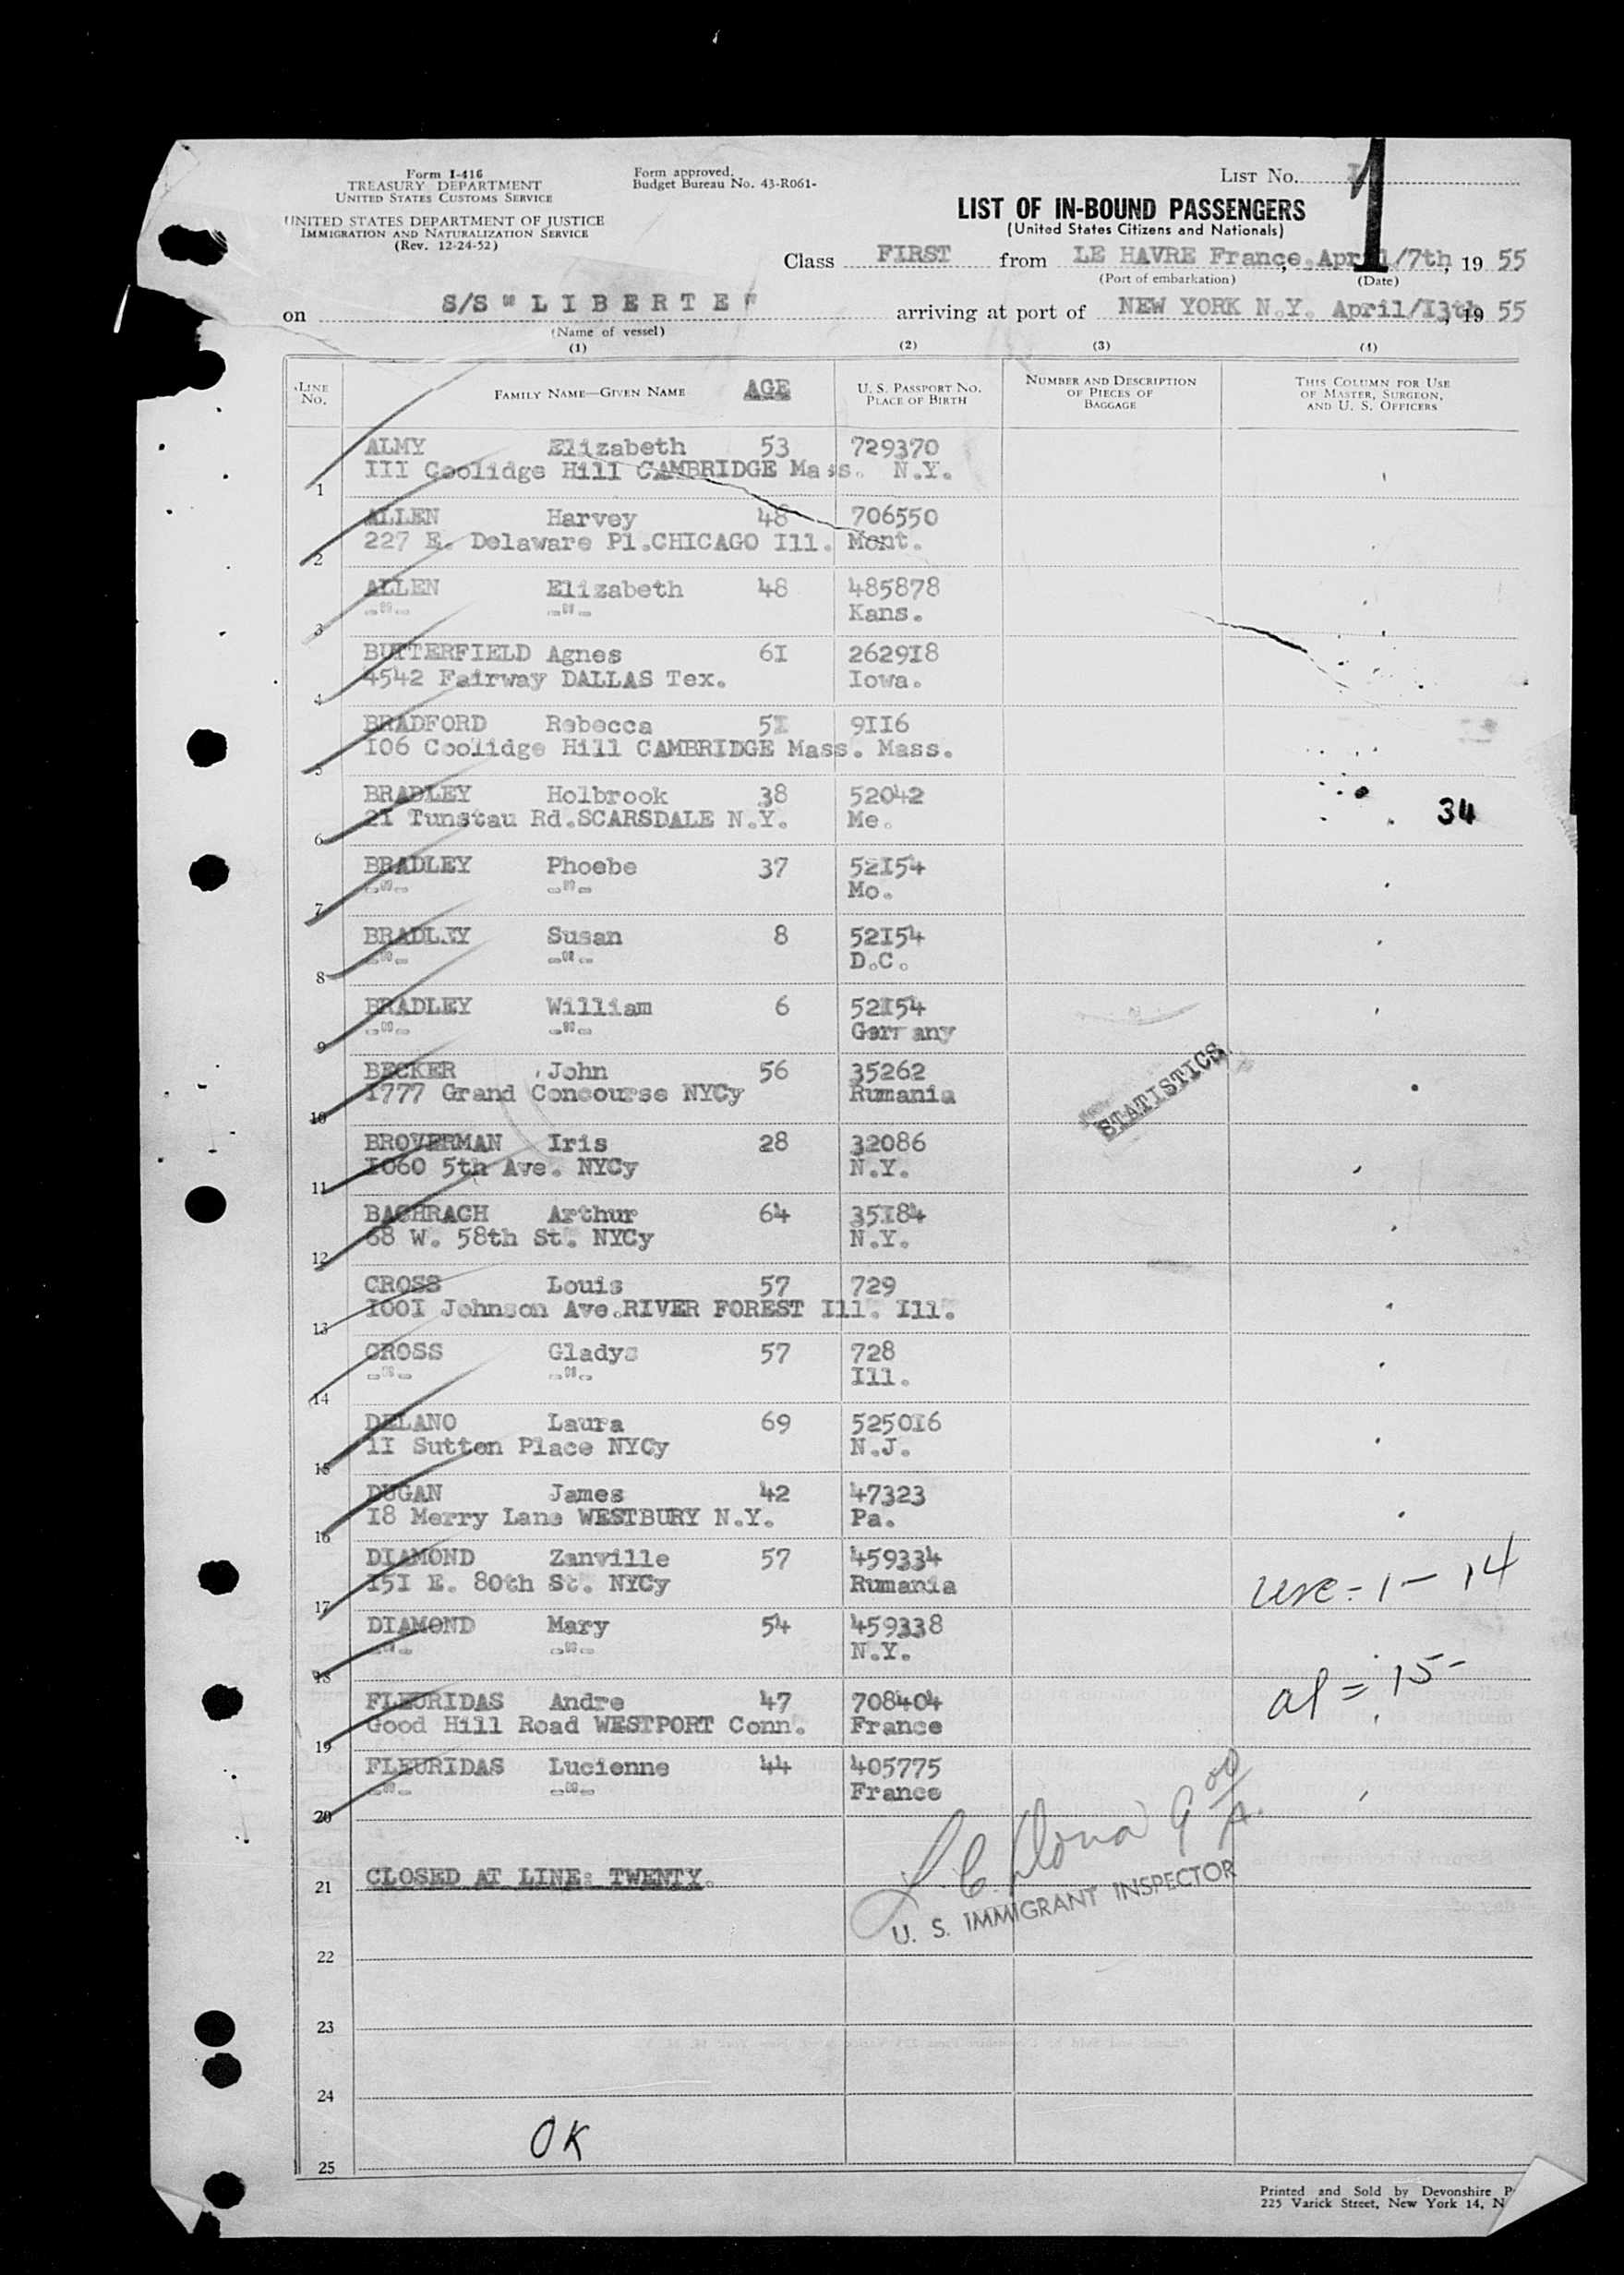 Form I-416
TREASURY DEPARTMENT
UNITED STATES CUSTOMS SERVICE
UNITED STATES DEPARTMENT OF JUSTICE
IMMIGRATION AND NATURALIZATION SERVICE
(Rev. 12-24-52)
Form approved.
Budget Bureau No. 43-R061-
LIST No. 1
LIST OF IN-BOUND PASSENGERS
(United States Citizens and Nationals)
Class FIRST from LE HAVRE France, April/7th, 19 55
(Port of embarkation) (Date)
on S/S "LIBERTE" arriving at port of NEW YORK N.Y. April/13th, 19 55
(Name of vessel)
(1) (2) (3) (4)
LINE No. FAMILY NAME—GIVEN NAME AGE U. S. PASSPORT NO. PLACE OF BIRTH NUMBER AND DESCRIPTION OF PIECES OF BAGGAGE THIS COLUMN FOR USE OF MASTER, SURGEON, AND U. S. OFFICERS
ALMY Elizabeth 53 729370
1 III Coolidge Hill CAMBRIDGE Mass. N.Y.
ALLEN Harvey 48 706550
2 227 E. Delaware Pl.CHICAGO Ill. Mont.
ALLEN Elizabeth 48 485878
3 -"- -"- Kans.
BUTTERFIELD Agnes 6I 2629I8
4 4542 Fairway DALLAS Tex. Iowa.
BRADFORD Rebecca 5I 9II6
5 I06 Coolidge Hill CAMBRIDGE Mass. Mass.
BRADLEY Holbrook 38 52042
6 2I Tunstau Rd.SCARSDALE N.Y. Me.
34
BRADLEY Phoebe 37 52I54
7 -"- -"- Mo.
BRADLEY Susan 8 52I54
8 -"- -"- D.C.
BRADLEY William 6 52I54
9 -"- -"- Germany
BECKER John 56 35262
10 I777 Grand Concourse NYCy Rumania
STATISTICS
BROVERMAN Iris 28 32086
11 I060 5th Ave. NYCy N.Y.
BACHRACH Arthur 64 35I84
12 68 W. 58th St. NYCy N.Y.
CROSS Louis 57 729
13 I00I Johnson Ave.RIVER FOREST Ill. Ill.
CROSS Gladys 57 728
14 -"- -"- Ill.
DELANO Laura 69 5250I6
15 1I Sutton Place NYCy N.J.
DUGAN James 42 47323
16 I8 Merry Lane WESTBURY N.Y. Pa.
DIAMOND Zanville 57 459334
17 I5I E. 80th St. NYCy Rumania
usc = 1 - 14
DIAMOND Mary 54 459338
18 -"- -"- N.Y.
al = 15-
FLEURIDAS Andre 47 708404
19 Good Hill Road WESTPORT Conn. France
FLEURIDAS Lucienne 44 405775
20 -"- -"- France
21 CLOSED AT LINE: TWENTY.
U. S. IMMIGRANT INSPECTOR
22
23
24
OK
25
Printed and Sold by Devonshire
225 Varick Street, New York 14, N